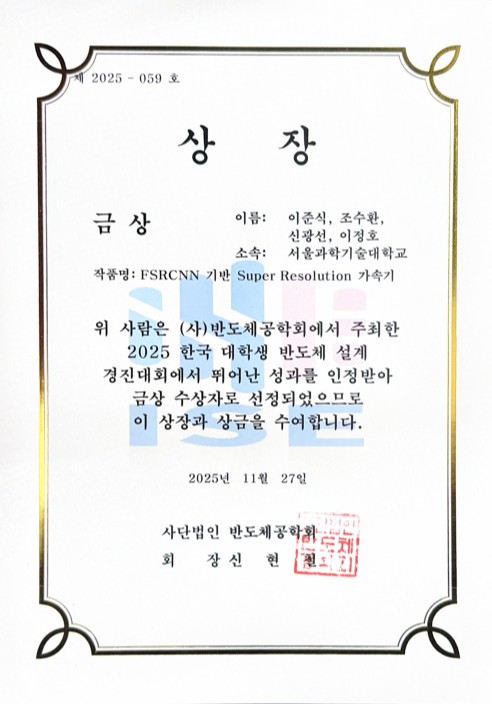 제 2025 - 059 호
상 장
금 상
이름: 이준식, 조수환,
신광선, 이정호
소속: 서울과학기술대학교
작품명: FSRCNN 기반 Super Resolution 가속기
위 사람은 (사)반도체공학회에서 주최한
2025 한국 대학생 반도체 설계
경진대회에서 뛰어난 성과를 인정받아
금상 수상자로 선정되었으므로
이 상장과 상금을 수여합니다.
ISE
2025년 11월 27일
사단법인 반도체공학회
회 장 신 현